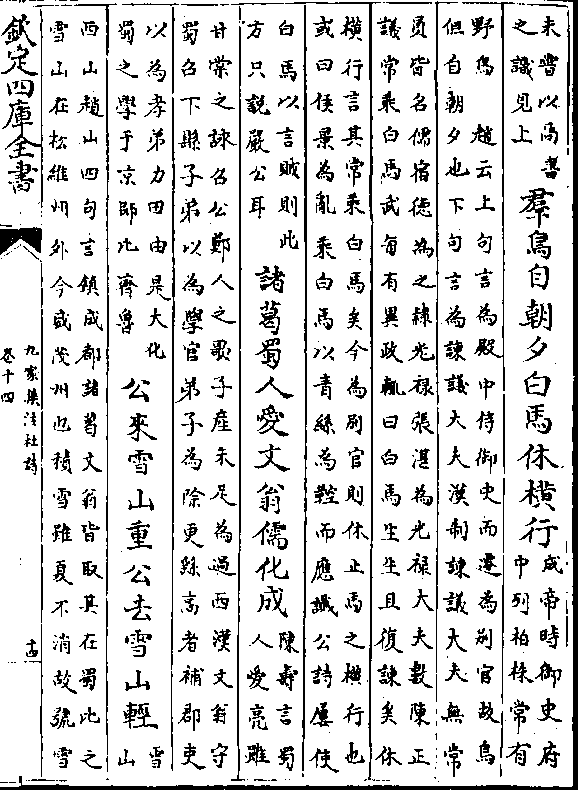 未嘗以
之識見上
羣烏自朝夕白馬休橫行
成帝時御史府
中列柏株常有
野烏 趙云上句言為殿中侍御史而遷為別官故烏
但自朝夕也下句言為諫議大夫漢制諫議大夫無常
員皆名儒宿德為之隸光祿張湛為光祿大夫數陳正
議常乘白馬武每有異政輒曰白馬生生且復諫矣休
橫行言其常乘白馬矣今為別官則休止馬之橫行也
或曰侯景為亂乘白馬以青絲為鞚而應讖公詩屢使
白馬以言賊則此
方只說嚴公耳
諸葛蜀人愛文翁儒化成
陳壽言蜀
人愛亮雖
甘棠之詠召公鄭人之歌子產未足為過西漢文翁守
蜀召下縣子弟以為學官弟子為除更繇高者補郡吏
以為孝弟力田由是大化
蜀之學于京師比齊魯
公來雪山重公去雪山輕
雪
山
西山趙山四句言鎮成都諸葛文翁皆取其在蜀比之
雪山在松維州外今威茂州也積雪雖夏不消故號雪
欽定四庫全書
九家集注杜詩
卷十四
十四